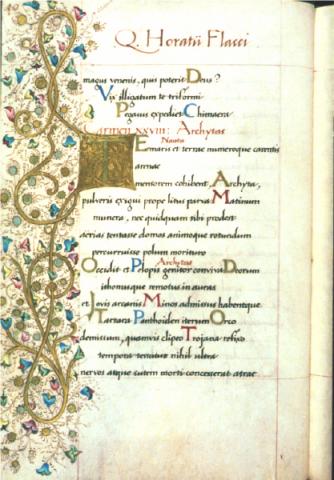 Q. Horatii Flacci
magus venenis, quis poterit Deus?
Vix illigatum te triformi
Pegasus expediet Chimaera
CARMEN XXVIII: Archytas
Nauta
TE maris et terrae numeroque carentis
arenae
mensorem cohibent Archyta,
pulveris exigui prope litus parva Matinum
munera, nec quidquam tibi prodest
aerias tentasse domos animoque rotundum
percurrisse polum morituro
Archytas
Occidit et Pelopis genitor conviva Deorum
Tithonusque remotus in auras
et Jovis arcanis Minos admissus habentque
Tartara Panthoiden iterum Orco
demissum, quamvis clipeo Trojana refixo
tempora testatus nihil ultra
nervos atque cutem morti concesserat atrae